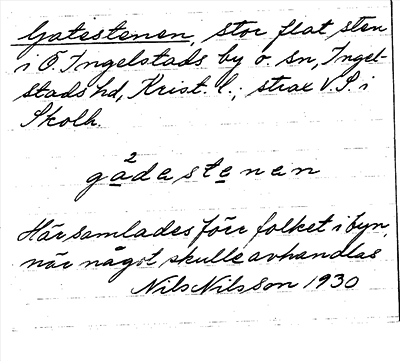 Gatestenen, stor flat sten
i Ö Ingelstads by o. sn, Ingel-
stads hd, Krist. l.; strax V. P. i
Skolh.
gådestenen
Här samlades förr folket i byn,
när något skulle avhandlas
Nils Nilsson 1930